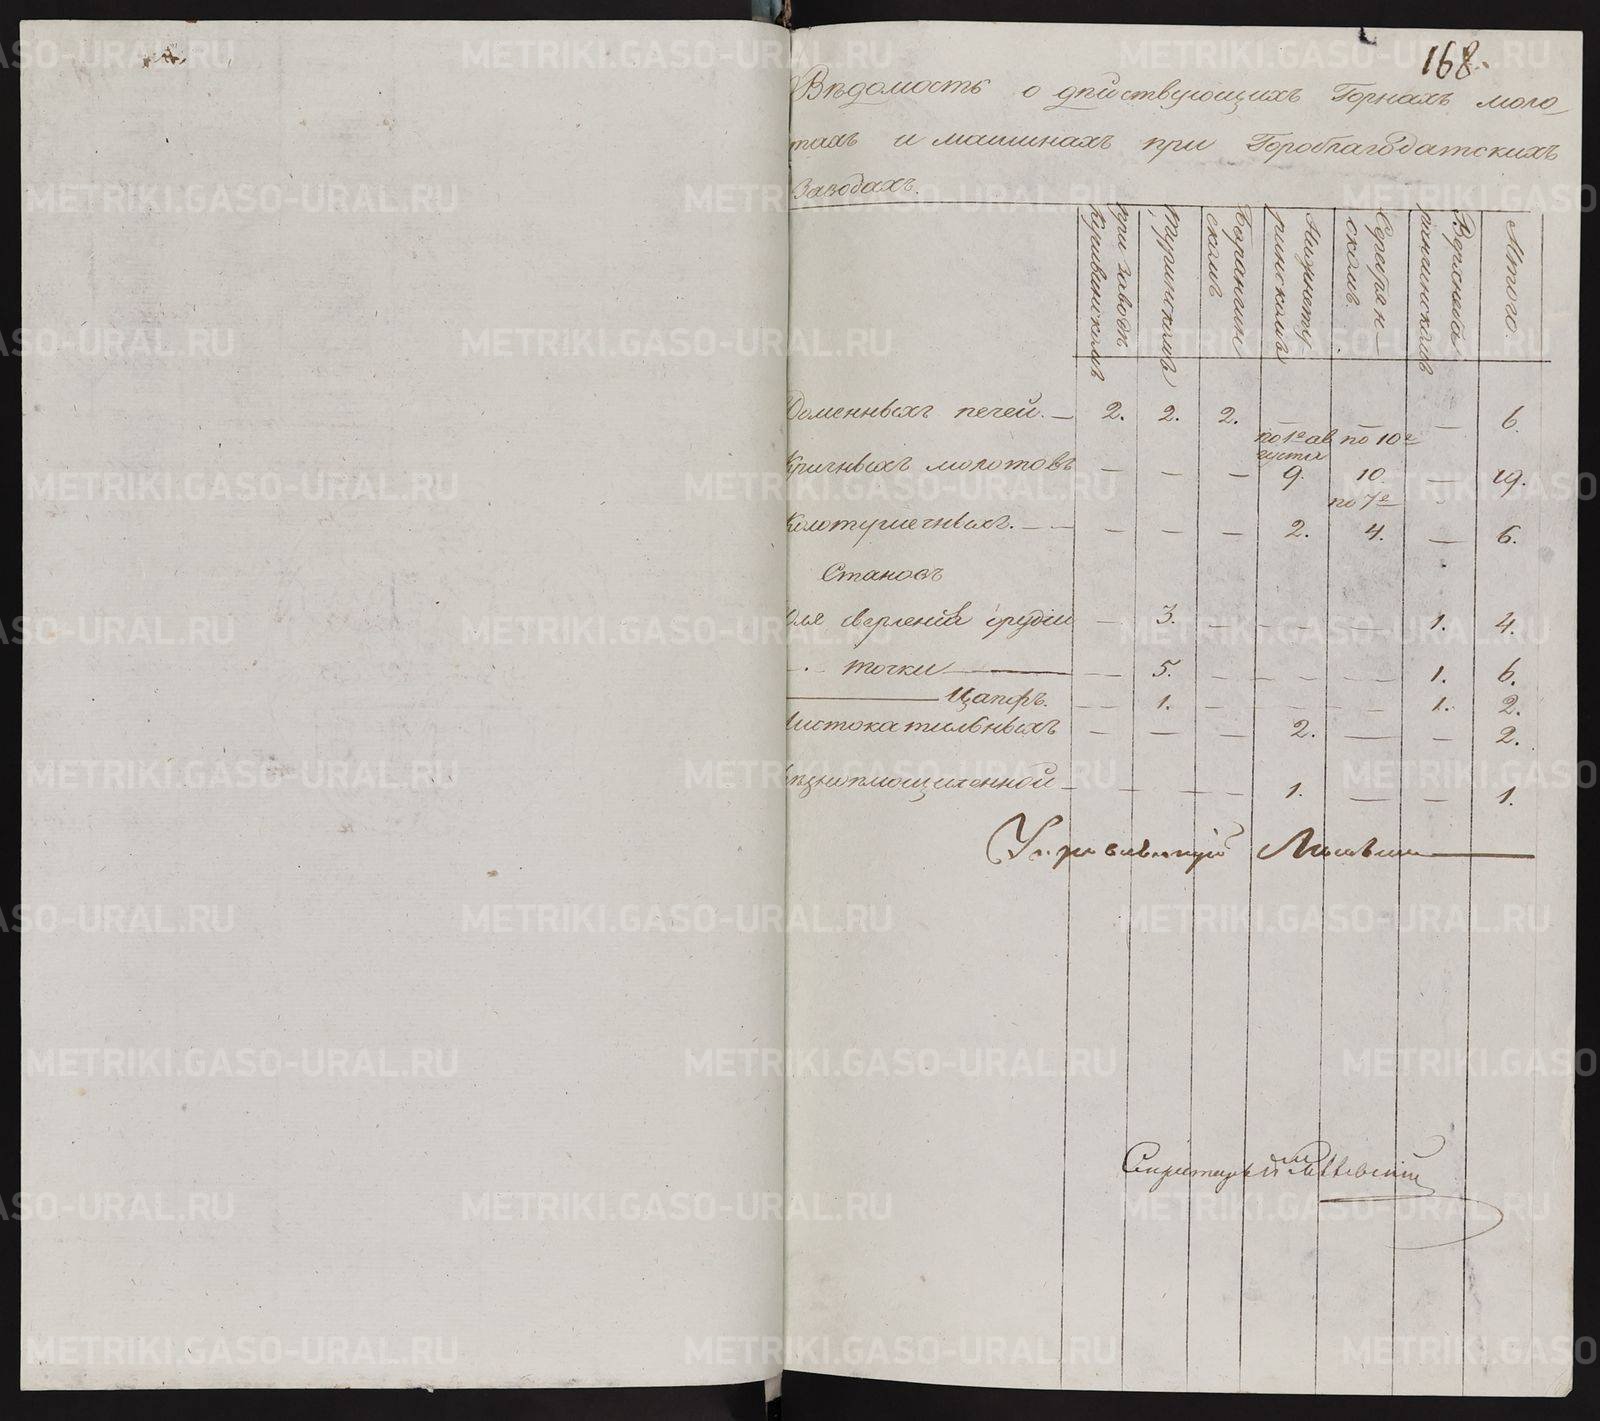 168.
Вѣдомость о дѣйствующихъ Горнахъ моло-
тахъ и машинахъ при Гороблагодатскихъ
Заводахъ.
при заводѣ Кушвинскомъ
Туринскомъ
Баранчин скомъ
Нижнету ринскомъ
Серебрян скомъ.
Верхнеба ранчинскомъ
Итого.
Доменныхъ печей. — 2. 2. 2. — — — 6.
по 1е ав густа по 10е
Кричныхъ молотовъ — — — 9. 10. — 19.
по 7е
Колотушечныхъ. — — — — 2. 4. — 6.
Становъ
Для сверленія Орудіи — 3. — — — 1. 4.
— точки — 5. — — — 1. 6.
— Цапфъ. — 1. — — — 1. 2.
Листокатальныхъ — — — 2. — — 2.
— — — 1. — — 1.
Управляющій
Секретарь
METRIKI.GASO-URAL.RU